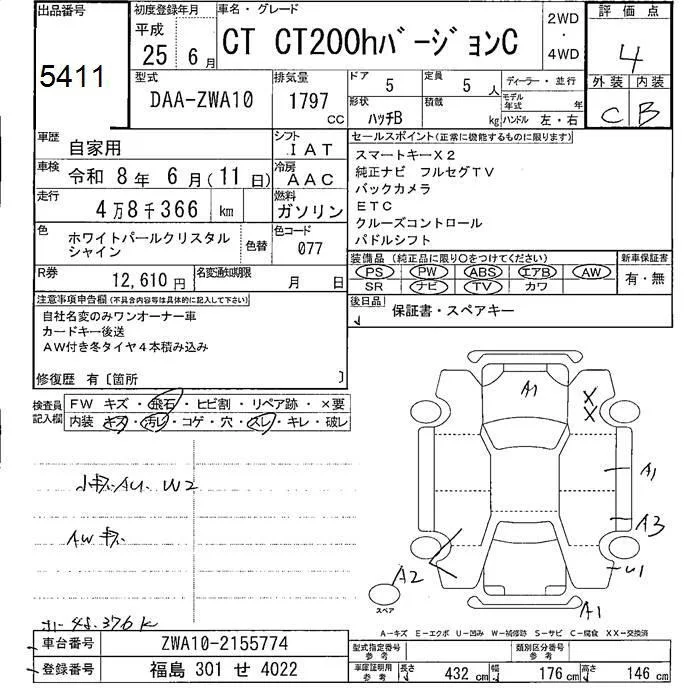 出品番号
5411
初度登録年月
平成
25 6月
車名・グレード
CT CT200hバージョンC
2WD
・
4WD
評価点
4
外装 内装
C B
型式
DAA-ZWA10
排気量
1797
CC
ドア
5
定員
5人
形状
ハッチB
積載
kg
ディーラー・並行
モデル年式
年
ハンドル 左・右
車歴
自家用
シフト
IAT
車検
令和 8年 6月(11日)
冷房
AAC
走行
4万8千366 km
燃料
ガソリン
色
ホワイトパールクリスタル
シャイン
色替
色コード
077
R券
12,610円
名変通知期限
月 日
セールスポイント(正常に機能するものに限ります)
スマートキーX2
純正ナビ フルセグTV
バックカメラ
ETC
クルーズコントロール
パドルシフト
装備品 (純正品に限り○をつけてください)
PS PW ABS エアB AW
SR ナビ TV カワ
新車保証書
有・無
後日品
保証書・スペアキー
注意事項申告欄(不具合内容等は具体的に記入して下さい)
自社名変のみワンオーナー車
カードキー後送
AW付き冬タイヤ4本積み込み
修復歴 有〔箇所 〕
検査員
記入欄
FW キズ・飛石・ヒビ割・リペア跡・×要
内装 キズ・汚レ・コゲ・穴・スレ・キレ・破レ
小キズ AU. W2
AWキズ
48.376K
A1
X
X
A1
A3
U1
A2
A1
スペア
A-キズ E-エクボ U-凹み W-補修跡 S-サビ C-腐食 XX-交換済
車台番号
ZWA10-2155774
登録番号
福島 301 せ 4022
型式指定番号
参考
類別区分番号
参考
車庫証明用
参考
長さ 432 cm 幅 176 cm 高さ 146 cm